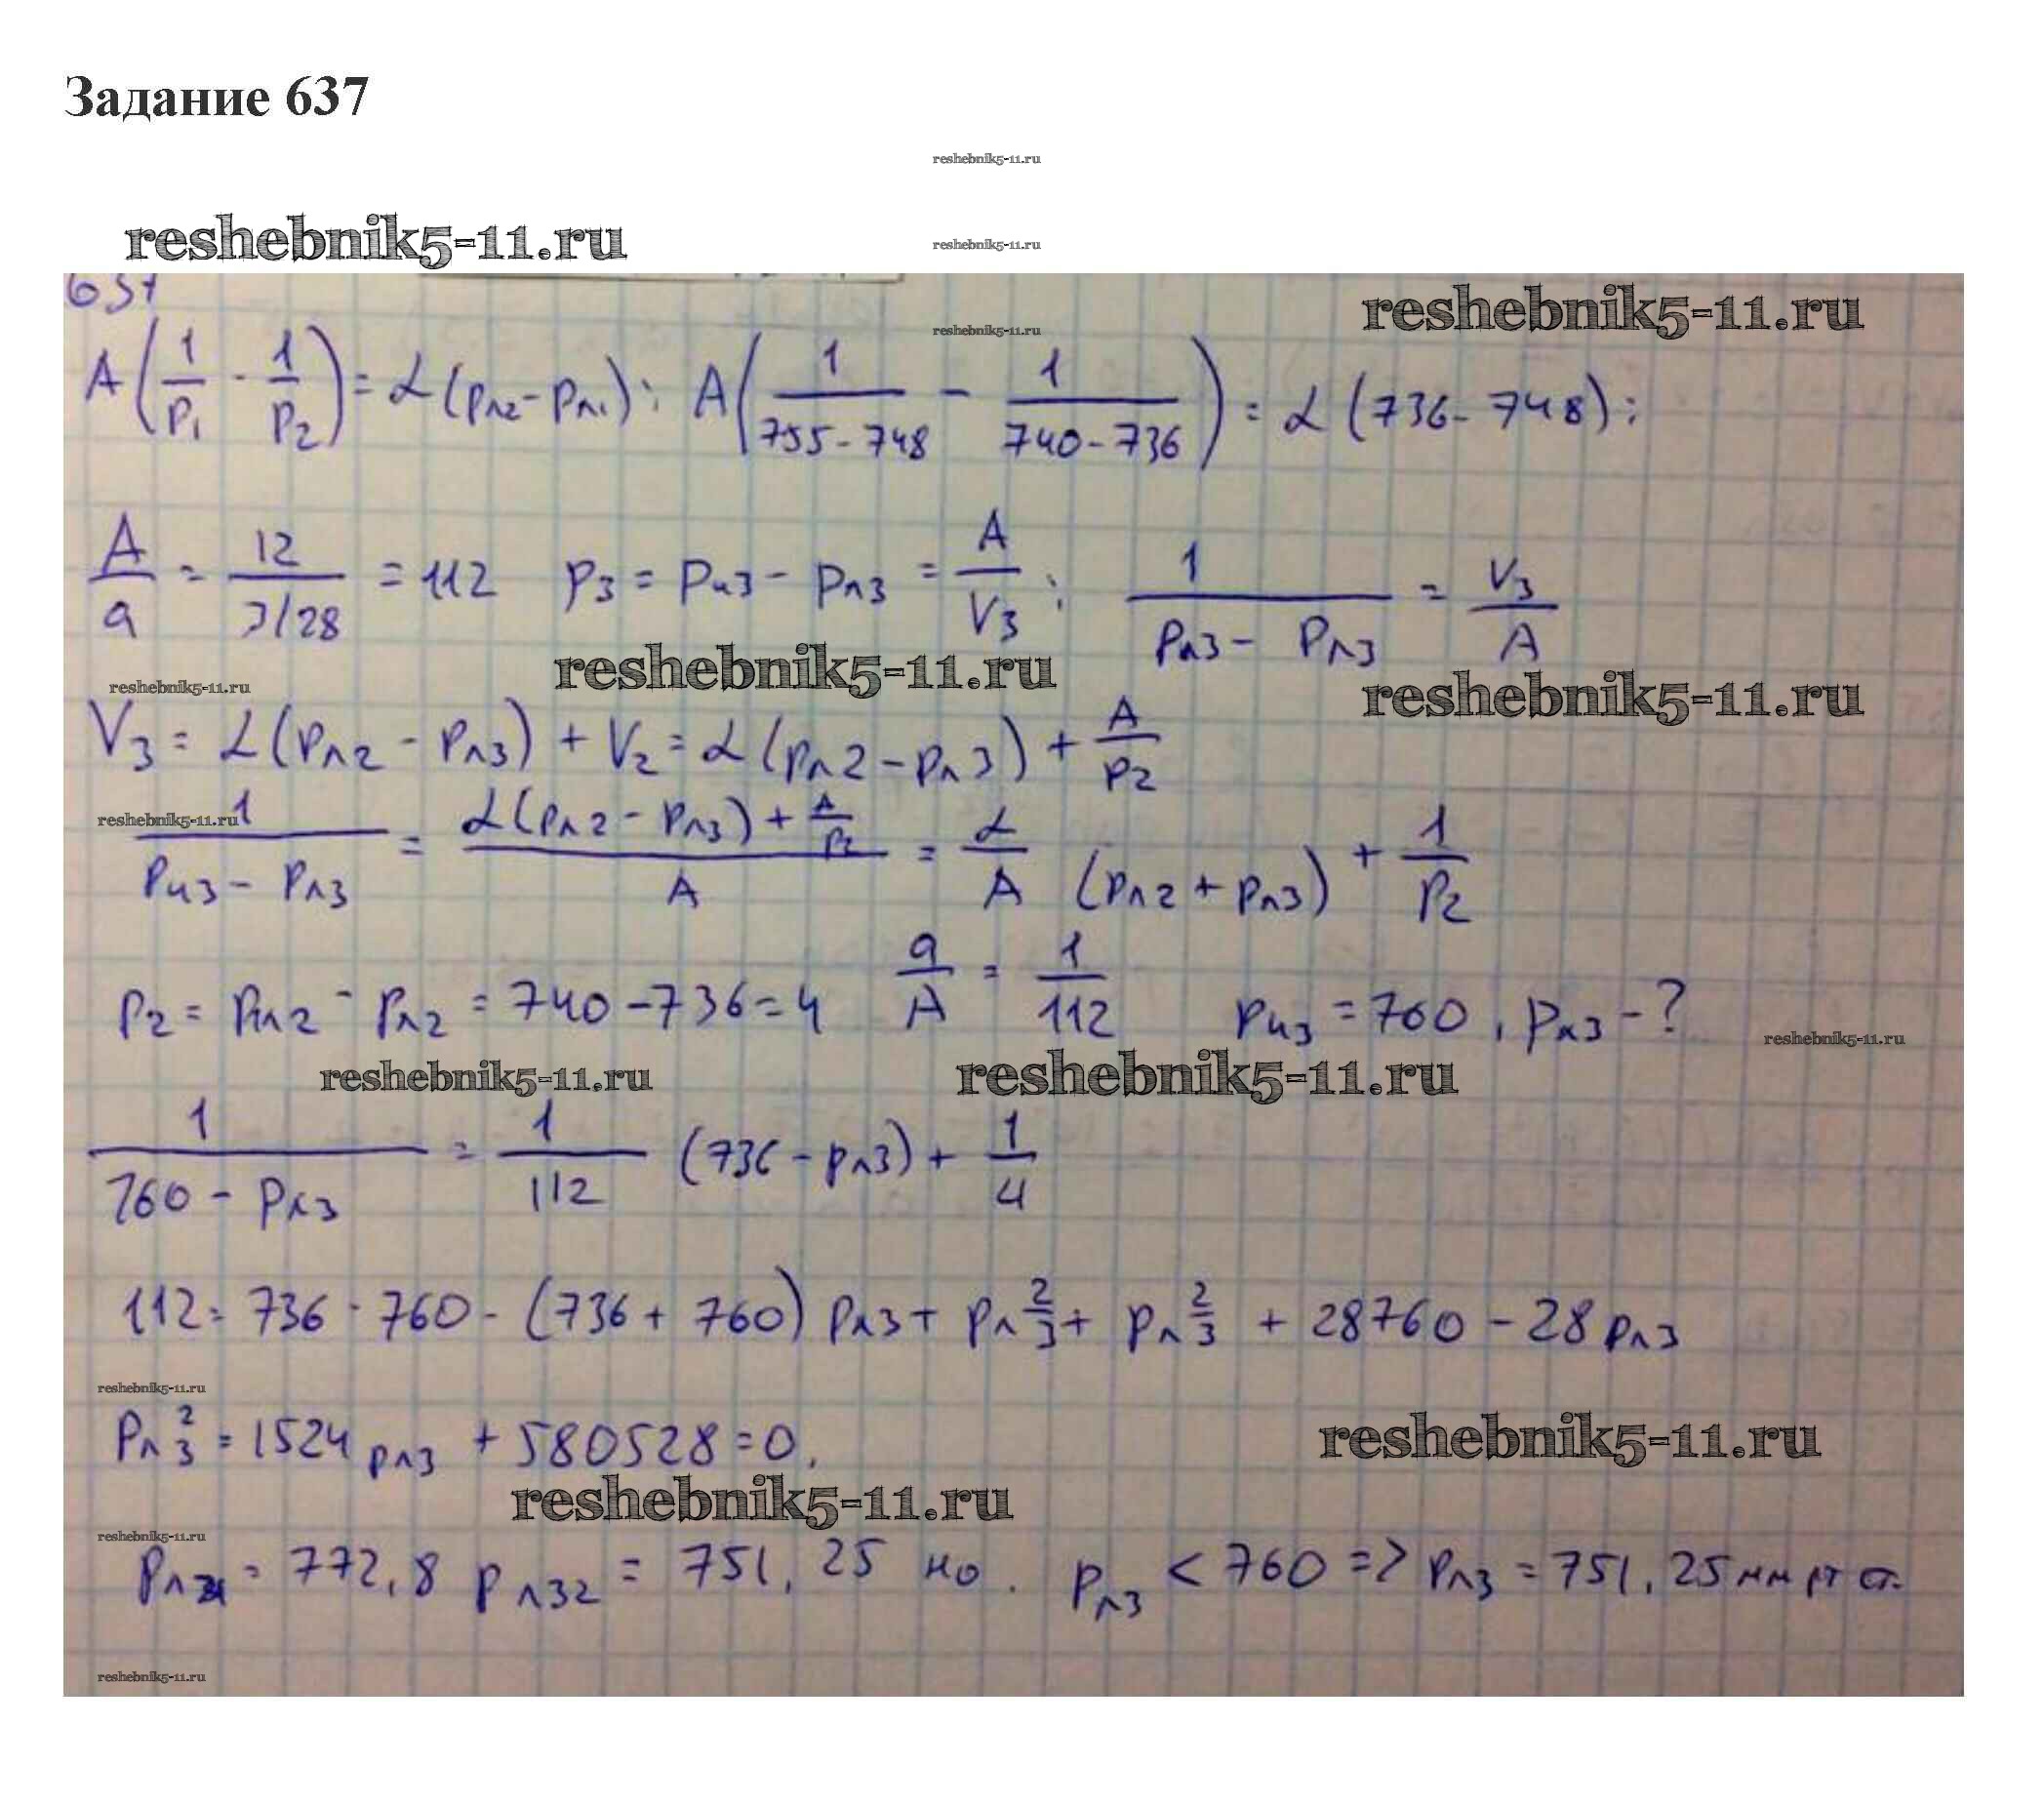 Задание 637
reshebnik5-11.ru
reshebnik5-11.ru
reshebnik5-11.ru
637
reshebnik5-11.ru
reshebnik5-11.ru
A(1/p₁ - 1/p₂) = α(pл2 - pл1); A(1/(755-748) - 1/(740-736)) = α(736-748);
A/a = 12/(3/28) = 112 p3 = pи3 - pл3 = A/V3; 1/(pл3 - pл3) = V3/A
reshebnik5-11.ru
reshebnik5-11.ru
reshebnik5-11.ru
V3 = α(pл2 - pл3) + V2 = α(pл2 - pл3) + A/p2
reshebnik5-11.ru
1/(pи3 - pл3) = (α(pл2 - pл3) + A/p2)/A = α/A (pл2 + pл3) + 1/p2
p2 = pпл2 - pл2 = 740-736=4 a/A = 1/112 pи3 = 760, pл3 - ?
reshebnik5-11.ru
reshebnik5-11.ru
reshebnik5-11.ru
1/(760 - pл3) = 1/112 (736 - pл3) + 1/4
112 = 736 · 760 - (736 + 760) pл3 + pл 2/3 + pл 2/3 + 28760 - 28 pл3
reshebnik5-11.ru
reshebnik5-11.ru
pл²₃ = 1524 pл3 + 580528 = 0.
reshebnik5-11.ru
reshebnik5-11.ru
pл31 = 772,8 pл32 = 751,25 но. pл3 < 760 => pл3 = 751,25 мм рт ст.
reshebnik5-11.ru